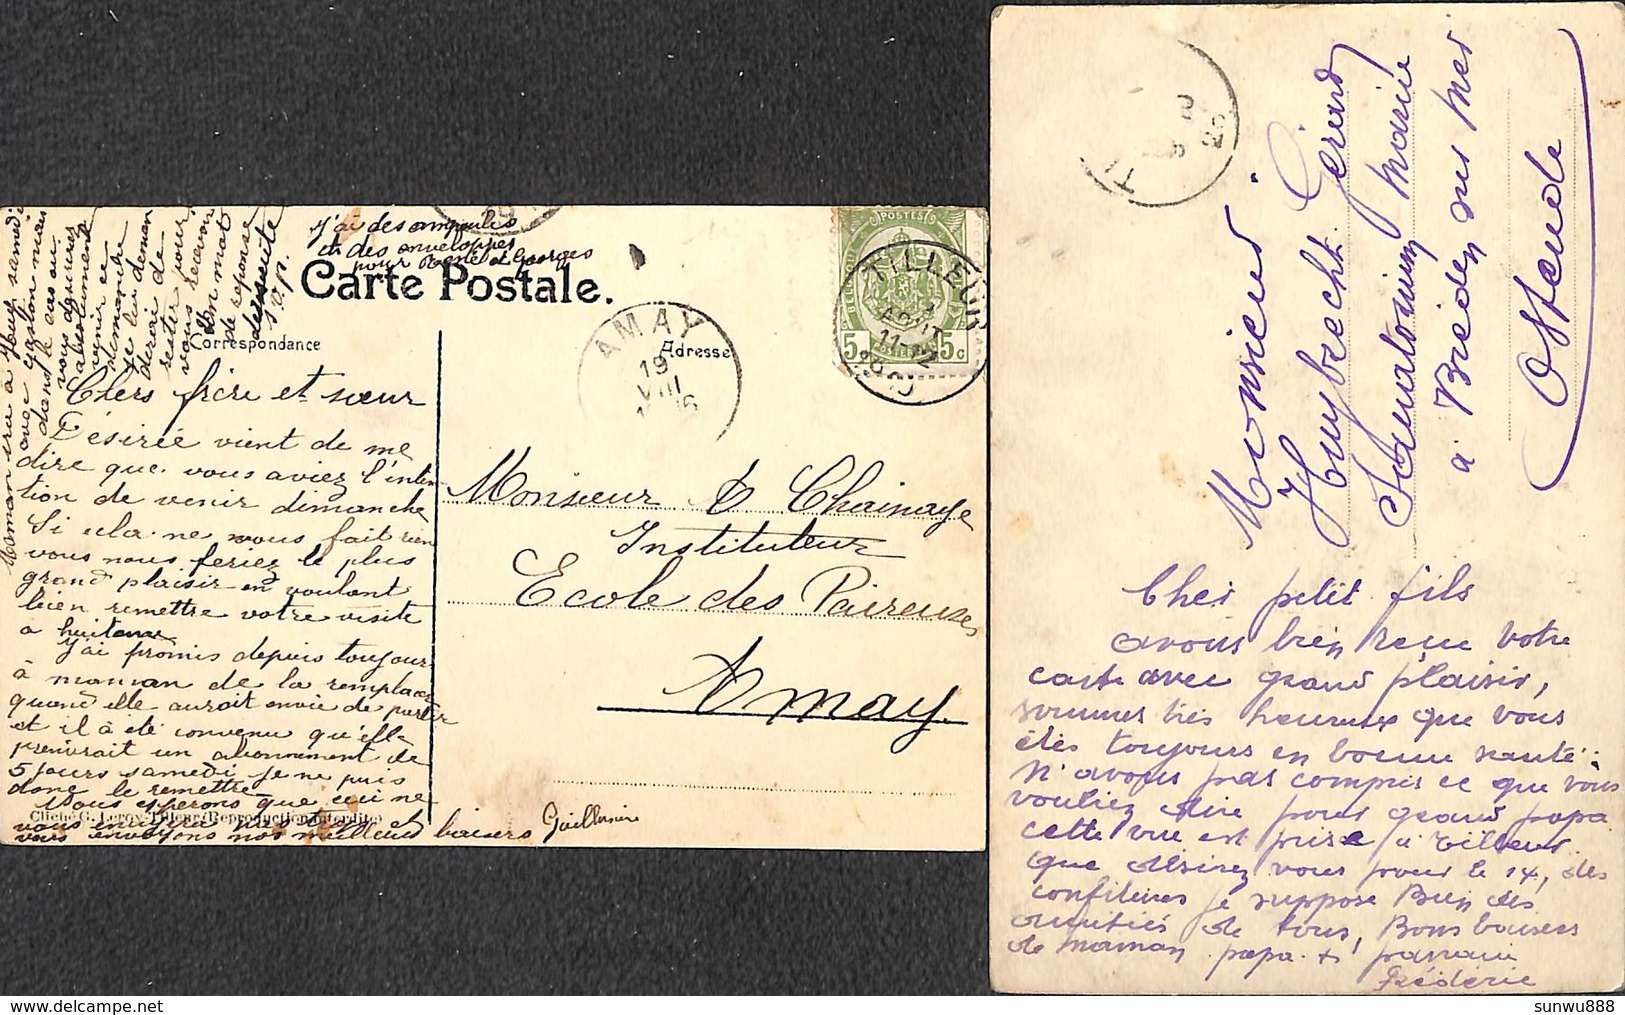 J'ai des ampoules
et des enveloppes
pour René et Georges
Carte Postale.
Correspondance
Adresse
POSTES
5 5c
TILLEUR
AOUT
11-12
AMAY
19
VIII
Maman ira à Huy samedi
avec Gaston mais
dans le cas où
vous désirez
absolument
venir ce
dimanche
je lui deman
derai de
rester pour
vous recevoir
Bon mot
de réponse
de suite
S.V.P.
Chers frère et sœur
Désirée vient de me
dire que vous aviez l'inten
tion de venir dimanche
Si cela ne vous fait rien
vous nous feriez le plus
grand plaisir en voulant
bien remettre votre visite
à huitaine
J'ai promis depuis toujours
à maman de la remplacer
quand elle aurait envie de partir
et il a été convenu qu'elle
prendrait un abonnement de
5 jours samedi je ne puis
donc le remettre
Nous espérons que ceci ne
vous
vous envoyons nos meilleurs baisers Guillaume
Cliché G. Leroy, Tilleur (Reproduction interdite)
Monsieur A Chainaye
Instituteur
Ecole des Paireuses
Amay
Monsieur
Huybrecht Gérard
Sanatorium Marin
à Breden sur Mer
Ostende
Cher petit fils
avons bien reçu votre
carte avec grand plaisir,
sommes très heureux que vous
êtes toujours en bonne santé;
n'avons pas compris ce que vous
vouliez dire pour grand papa
cette vue est prise à Tilleur.
que désirez vous pour le 14, des
confitures je suppose Bien des
amitiés de tous, Bons baisers
de maman papa + parrain
Frédéric
sunwu888